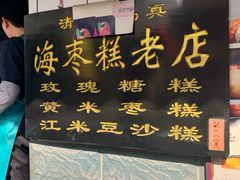 清 真
海枣糕老店
玫瑰糖糕
黄米枣糕
江米豆沙糕